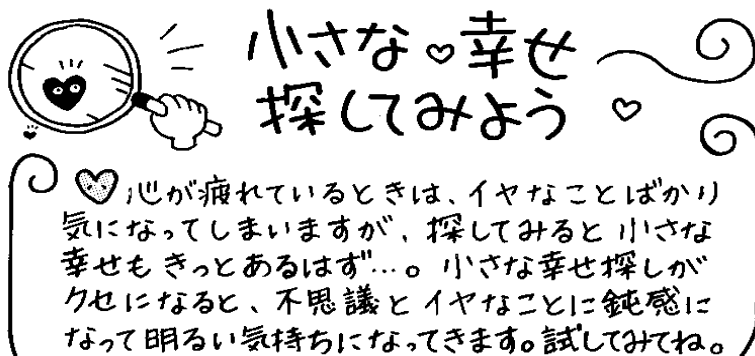 小さな♡幸せ
探してみよう♡
心が疲れているときは、イヤなことばかり
気になってしまいますが、探してみると小さな
幸せもきっとあるはず…。小さな幸せ探しが
クセになると、不思議とイヤなことに鈍感に
なって明るい気持ちになってきます。試してみてね。